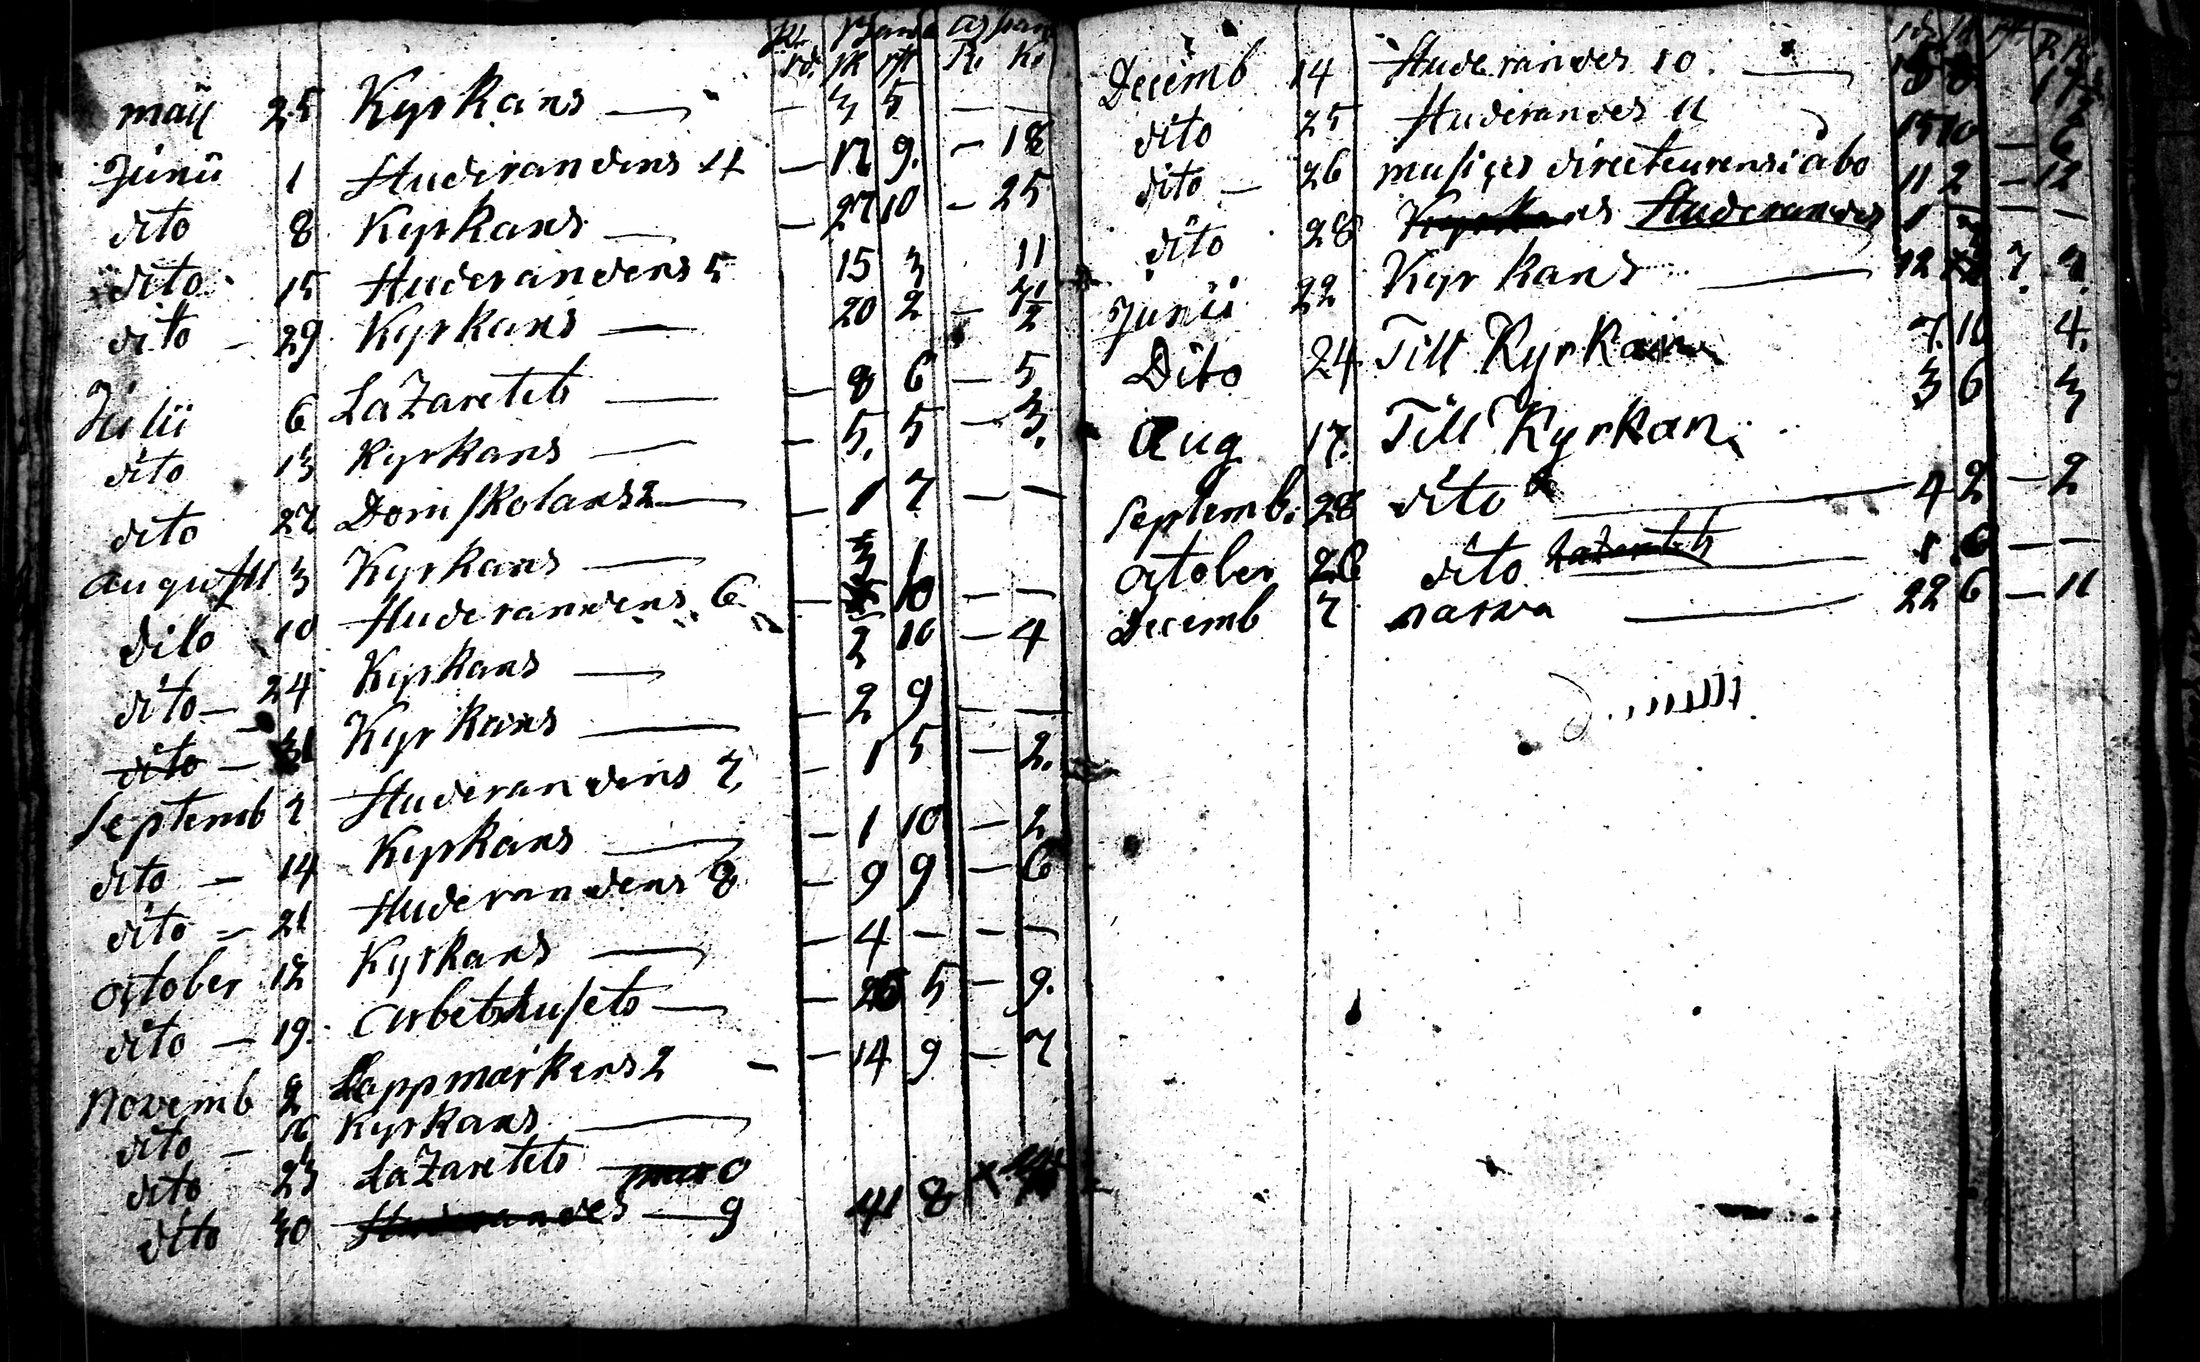 Rd. sk rst R. K.
maij 25 Kyrkans — 3 5 — —
Junii 1 Studerandens 4 — 12 9. — 18
dito 8 Kyrkans — 27 10 — 25
dito 15 Studerandens 5 15 3 11
dito — 29 Kyrkans — 20 2 — 7 1/2
Julii 6 LaZaretets — 8 6 — 5
dito 13 Kyrkans — 5. 5 — 3.
dito 27 Dom skolans 2 — 1 7 — —
augusti 3 Kyrkans —
dito 10 Studerandens 6 — —
dito — 24 Kyrkans — 2 10 — 4
dito — 31 Kyrkans — 2 9 — —
Septemb 7 Studerandens 7, — 1 5 — 2.
dito — 14 Kyrkans — 1 10 — 2
dito — 21 Studerandens 8 — 9 9 — 6
october 12 Kyrkans — 4 — — —
dito — 19. arbetshusets — 5 — 9.
novemb 2 Lappmarkens 2 — 14 9 — 7
dito — 16 Kyrkans —
dito 23 LaZaretets —
dito 30 Studerandes — 9 41 8
Decemb 14 Studerandes 10. — 17
dito 25 Studerandes 11 15 10 — 6
dito — 26 musices directeurens i åbo 11 2 — 12
dito 28 Kyrkans Studerandes 1 — —
Junii 22 Kyrkans — 12 7.
Dito 24 Till Kyrkan 7. 10 4.
Aug 17. Till Kyrkan. 3 6 3
Septemb. 28 dito — 4 2 — 2
october 26 dito Lazarets 1 6 — —
Decemb 7 narva — 22 6 — 11